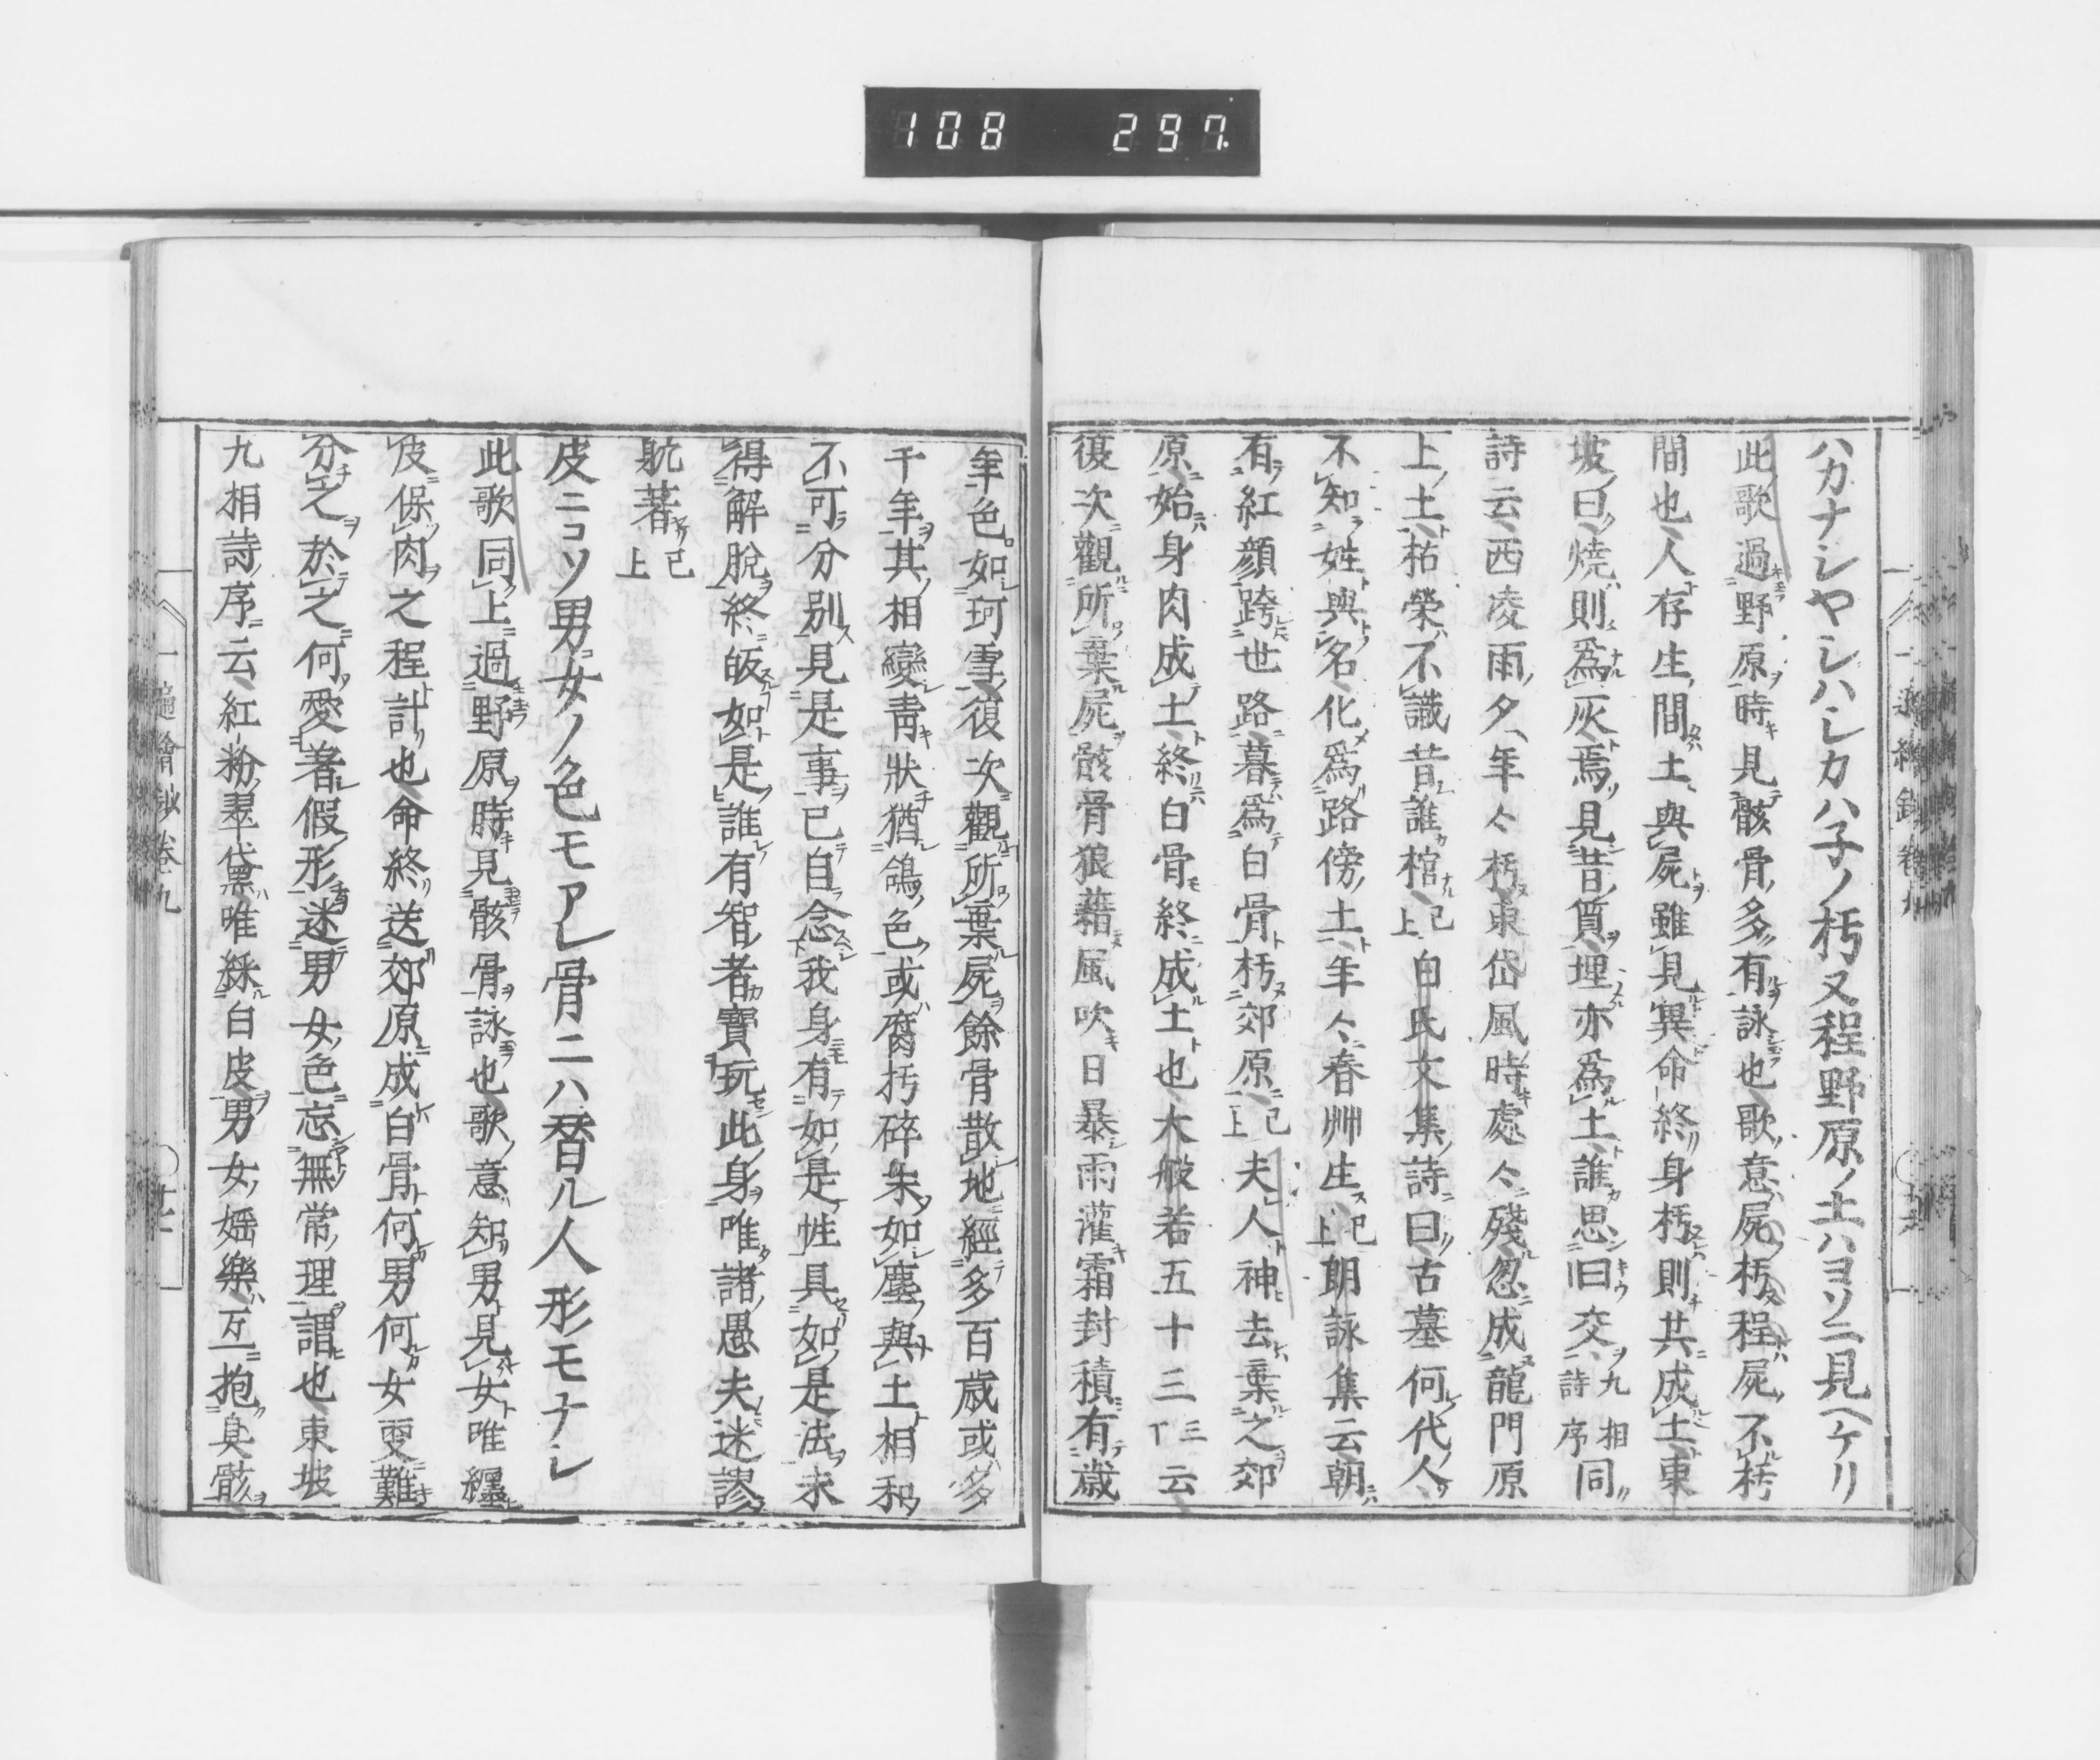 108 297
ハカナシヤシハシカハ子ノ朽又程野原ノ土ハヨソニ見ヘケリ
此歌過野原時見骸骨多有詠也歌意屍朽程屍不朽
間也人存生間土與屍雖見異命終身朽則共成土東
坡曰燒則爲灰焉見昔質埋亦爲土誰思旧交九相詩序同
詩云西凌雨夕年々朽東岱風時處々殘忽成龍門原
上土枯榮不識昔誰棺已上白氏文集詩曰古墓何代人
不知姓與名化爲路傍土年々春艸生已上朗詠集云朝
有紅顔跨世路暮爲白骨朽郊原已上夫人神去棄之郊
原始身肉成土終白骨終成土也大般若五十三三丁云
復次觀所棄屍骸骨狼藉風吹日暴雨灌霜封積有歲
年色如珂雪復次觀所棄屍餘骨散地經多百歲或多
千年其相變靑狀猶鴿色或腐朽碎末如塵與土相和
不可分別見是事已自念我身有如是性具如是法未
得解脫終皈如是誰有智者寶玩此身唯諸愚夫迷謬
躭著已上
皮ニコソ男女ノ色モアレ骨ニハ替ル人形モナシ
此歌同上過野原時見骸骨詠也歌意知男見女唯纒
皮保肉之程計也命終送郊原成白骨何男何女更難
分之於之何愛著假形迷男女色忘無常理謂也東坡
九相詩序云紅粉翠黛唯綵白皮男女婬樂互抱臭骸
一遍繪鈔卷九